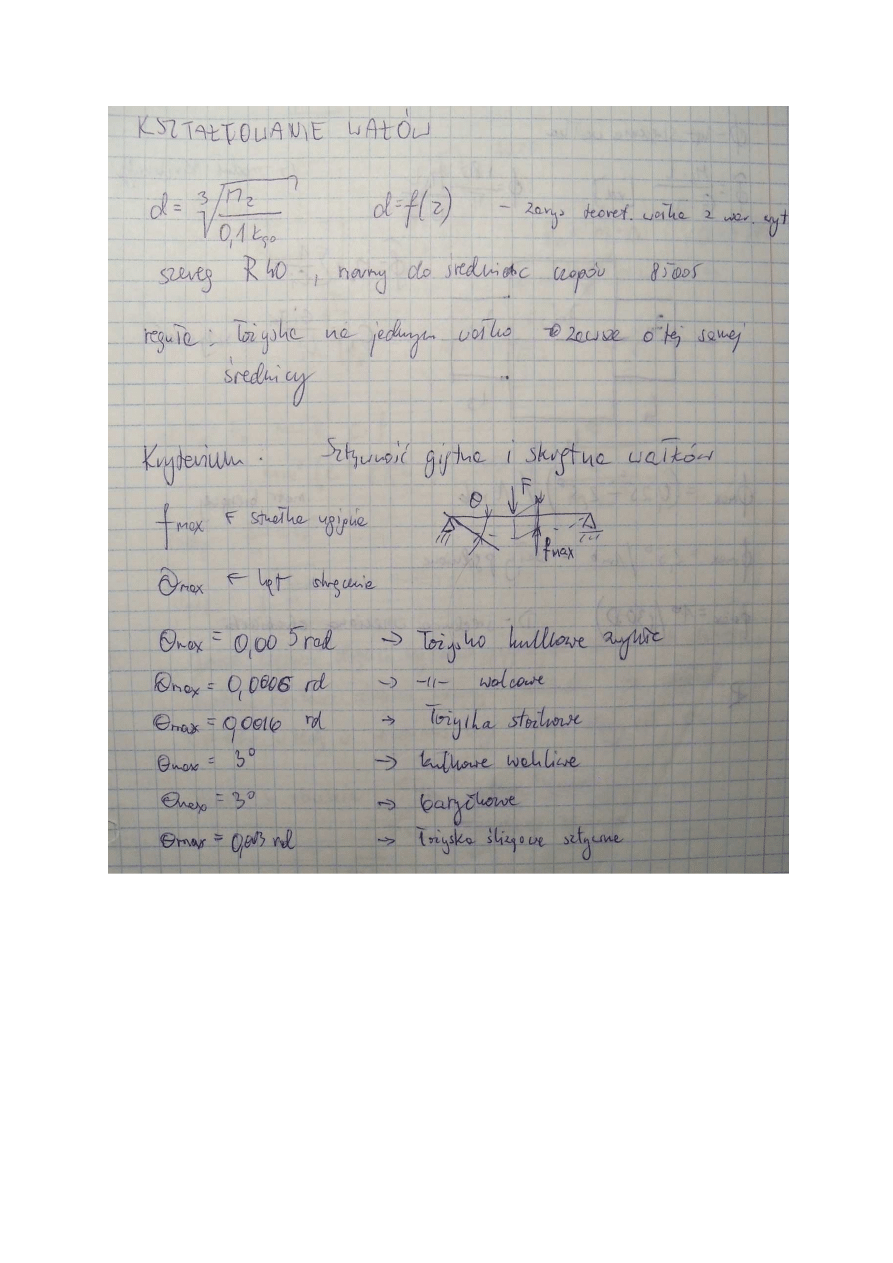 KSZTAŁTOWANIE WAŁÓW
d = ∛(Mz / 0,1 kgo)   d=f(z)   - zarys teoret. wałka z war. wyt
szereg R40, normy do średnic czopów 85005
reguła: łożyska na jednym wałko zawsze o tej samej
średnicy
Kryterium: Sztywność giętna i skrętna wałków
θ F
f max ← strzałka ugięcia
fmax
θmax ← kąt skręcenia
θmax = 0,005 rad → łożysko kulkowe zwykłe
θmax = 0,0006 rd → -||- walcowe
θmax = 0,0016 rd → łożyska stożkowe
θmax = 3° → kulkowe wahliwe
θmax = 3° → baryłkowe
θmax = 0,003 rd → łożyska ślizgowe sztywne